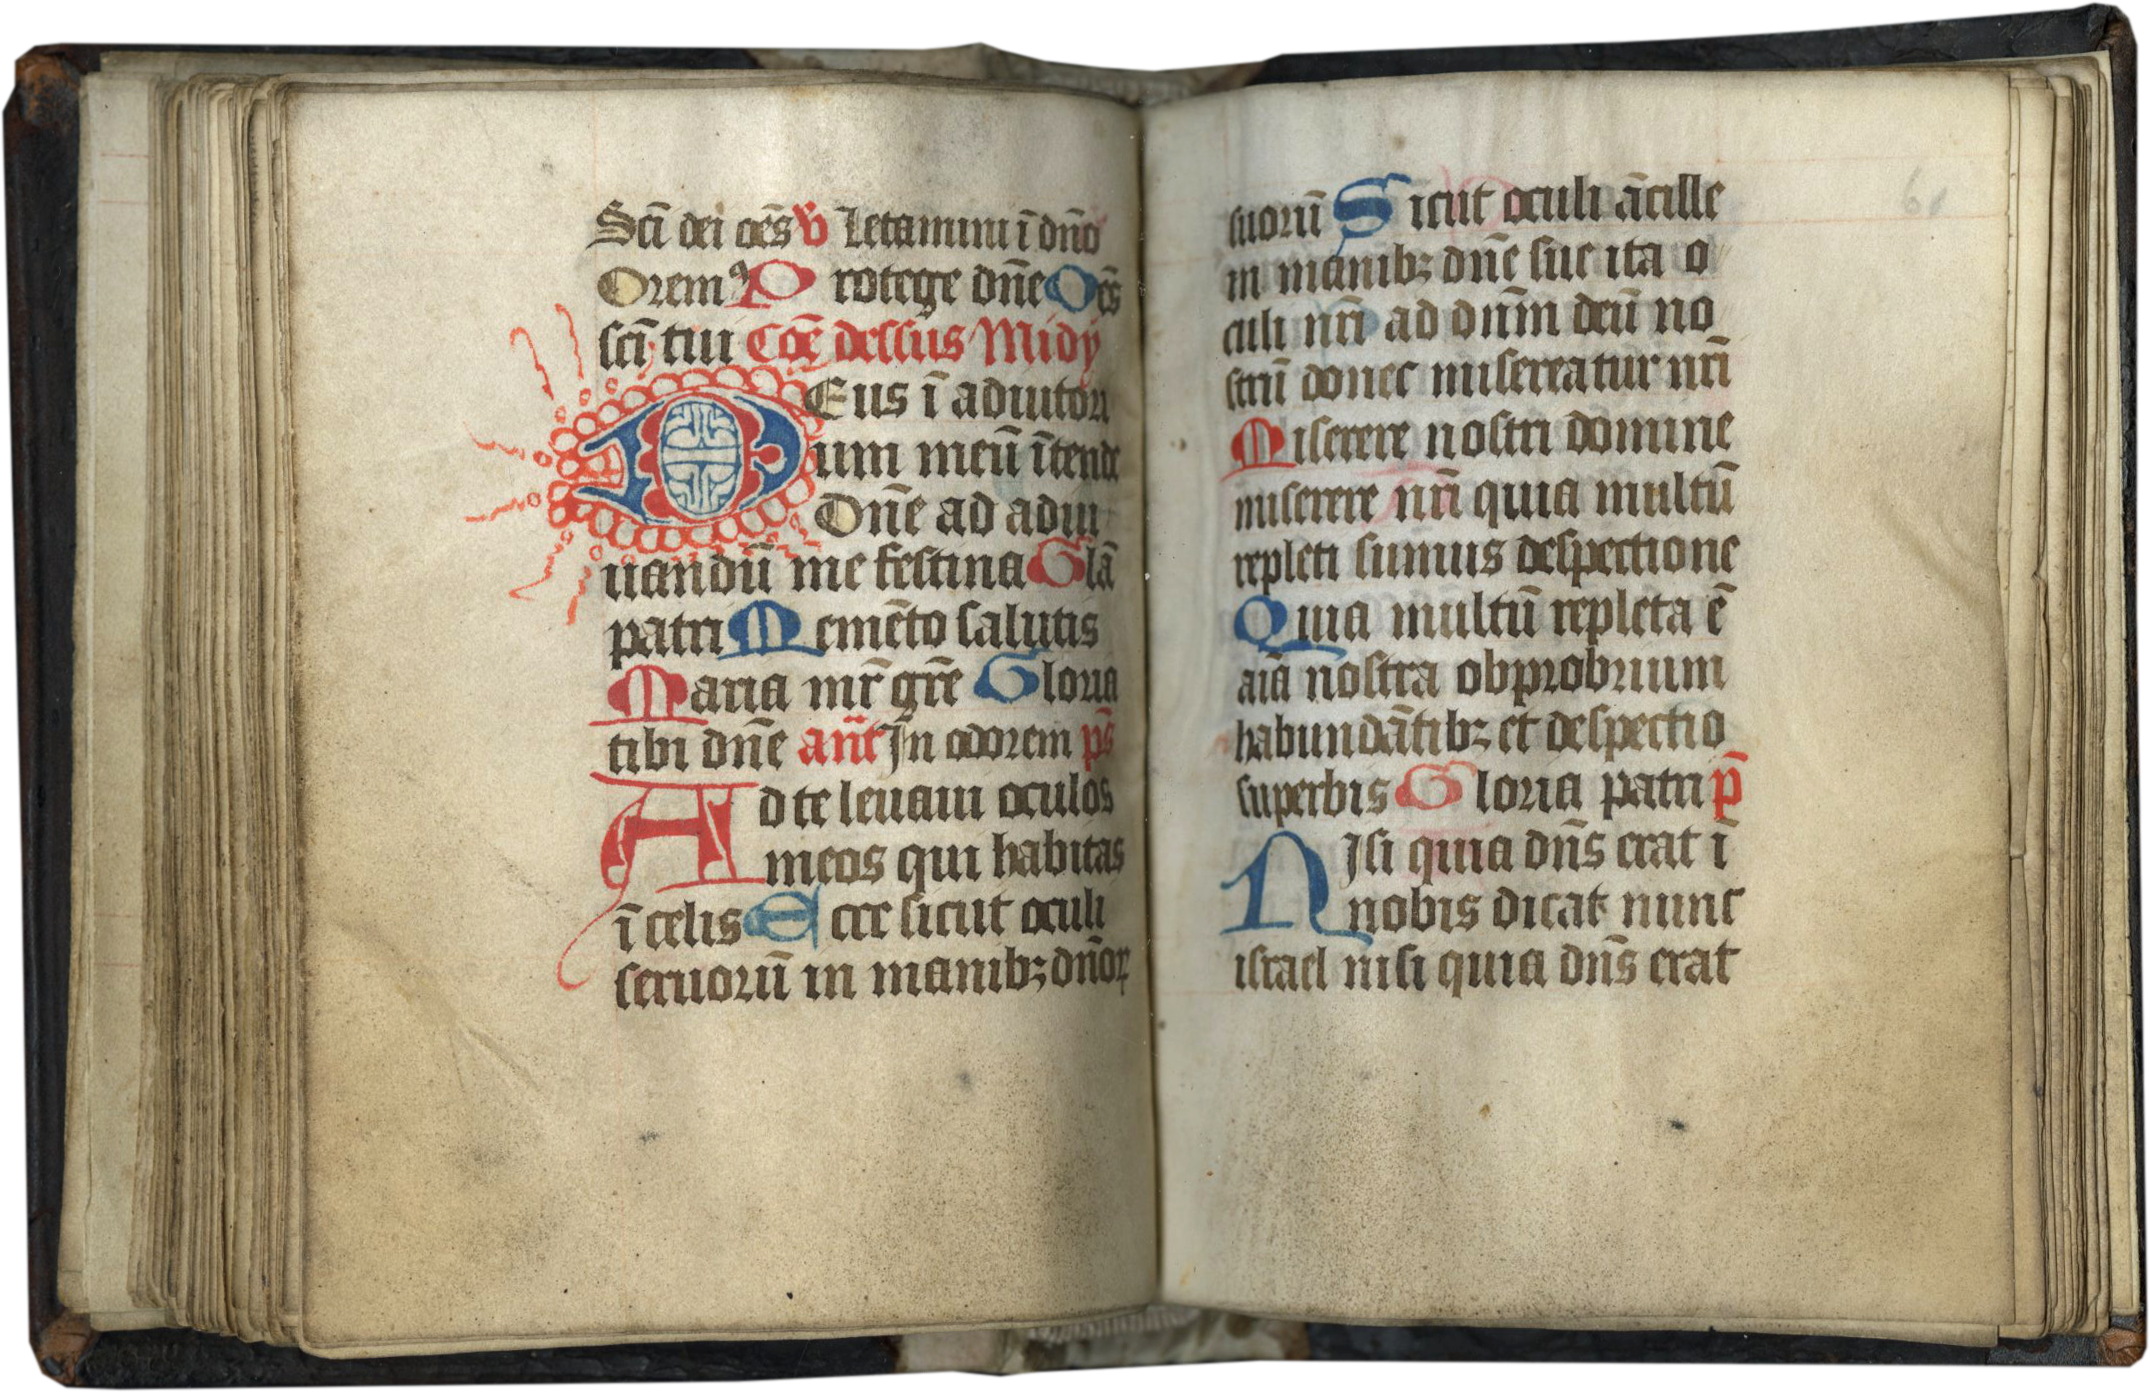 Sci̅ dei oe̅s ℣ Letamini i̅ dn̅o
Oremꝰ Protege dn̅e Oe̅s
sci̅ tui Co̅e̅ dessus Midy
DEus i̅ adiutori
um meu̅ i̅tende
Dn̅e ad adiu
uandu̅ me festina Gla̅
patri Meme̅to salutis
Maria mr̅ gr̅e Gloria
tibi dn̅e an̅t In odorem ps̅
Ad te leuaui oculos
meos qui habitas
i̅ celis Ecce sicut oculi
seruoru̅ in manibꝫ dn̅oꝝ
suoru̅ Sicut oculi a̅cille
in manibꝫ dn̅e sue ita o
culi nr̅i ad dn̅m deu̅ no
stru̅ donec misereatur nr̅i
Miserere nostri domine
miserere nr̅i quia multu̅
repleti sumus despectione
Quia multu̅ repleta e̅
ai̅a nostra obprobrium
habunda̅tibꝫ et despectio
superbis Gloria patri p̅
NIsi quia dn̅s erat i̅
nobis dicat nunc
israel nisi quia dn̅s erat